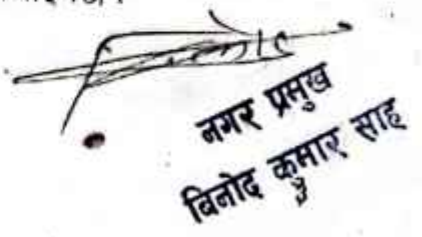 नगर प्रमुख
बिनोद कुमार साह